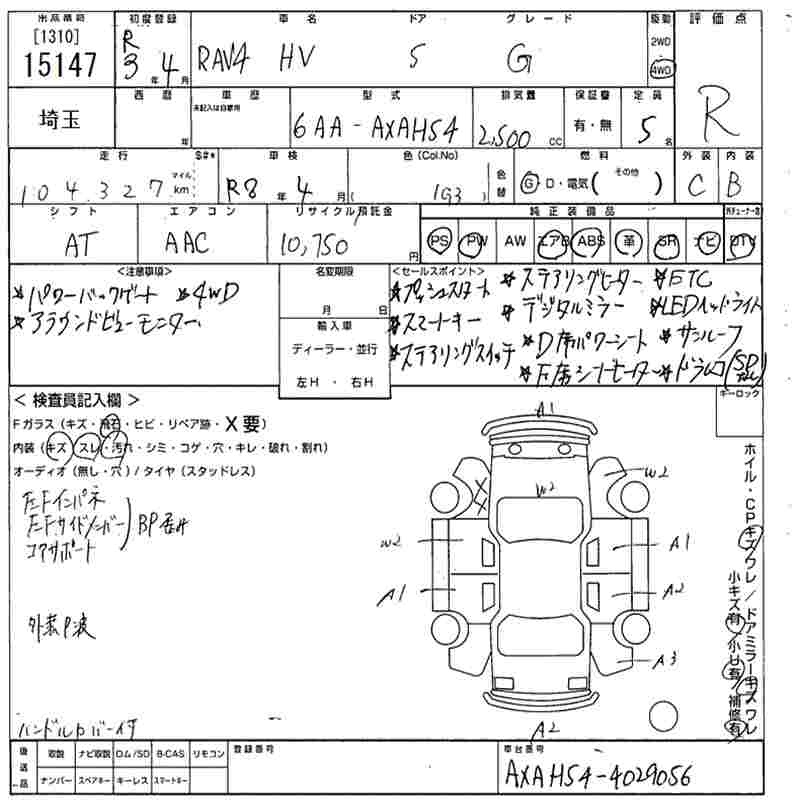 出品番号 初度登録 車名 ドア グレード 駆動 評価点
[1310] 15147 R3年 4月 RAV4 HV 5 G 2WD 4WD R
埼玉 西暦 年 車歴 未記入は自家用 型式 6AA-AXAH54 排気量 2,500cc 保証書 有・無 定員 5名
走行 S#* 車検 色(Col.No) 燃料 外装 内装
104,327 マイル km R8年 4月 ( 1G3) 色替 G・D・電気( その他 ) C B
シフト エアコン リサイクル預託金 純正装備品
AT AAC 10,750円 PS PW AW エアB ABS 革 SR ナビ DTV
<注意事項> 名変期限 <セールスポイント>
*パワーバックゲート *4WD
*アラウンドビューモニター
月 日
輸入車
ディーラー・並行
左H ・ 右H
*プッシュスタート *ステアリングヒーター *ETC
*スマートキー *デジタルミラー *LEDヘッドライト
*ステアリングスイッチ *D席パワーシート *サンルーフ
*F席シートヒーター *ドラレコ(SDなし)
キーロック
< 検査員記入欄 >
Fガラス(キズ・飛石・ヒビ・リペア跡・X要)
内装(キズ・スレ・汚れ・シミ・コゲ・穴・キレ・破れ・割れ)
オーディオ(無し・穴)/タイヤ(スタッドレス)
左Fインパネ
左Fサイドメンバー BP歪み
コアサポート
外装P波
ハンドルカバー付
A1
W2
W2
XX
W2
A1
A1
A2
A3
A2
ホイル・CPキズワレ/ドアミラーキズワレ
小キズ有 小U有 補修有
後送品 取説 ナビ取説 ロム/SD B-CAS リモコン 登録番号 車台番号
ナンバー スペアキー キーレス スマートキー AXAH54-4029056